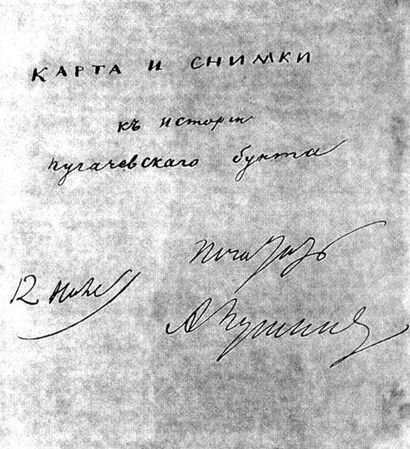 КАРТА И СНИМКИ
къ исторіи
пугачевскаго бунта
12
А Пушкинъ